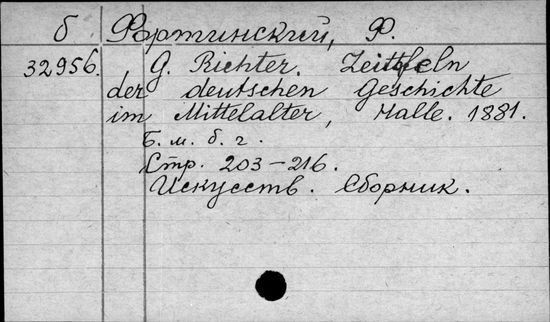 б Фортинский, Ф.
32956. G. Richter. Zeittafeln
der deutschen Geschichte
im Mittelalter, Halle. 1881.
Б. м. б. г.
Стр. 203-216.
Искусств. Сборник.